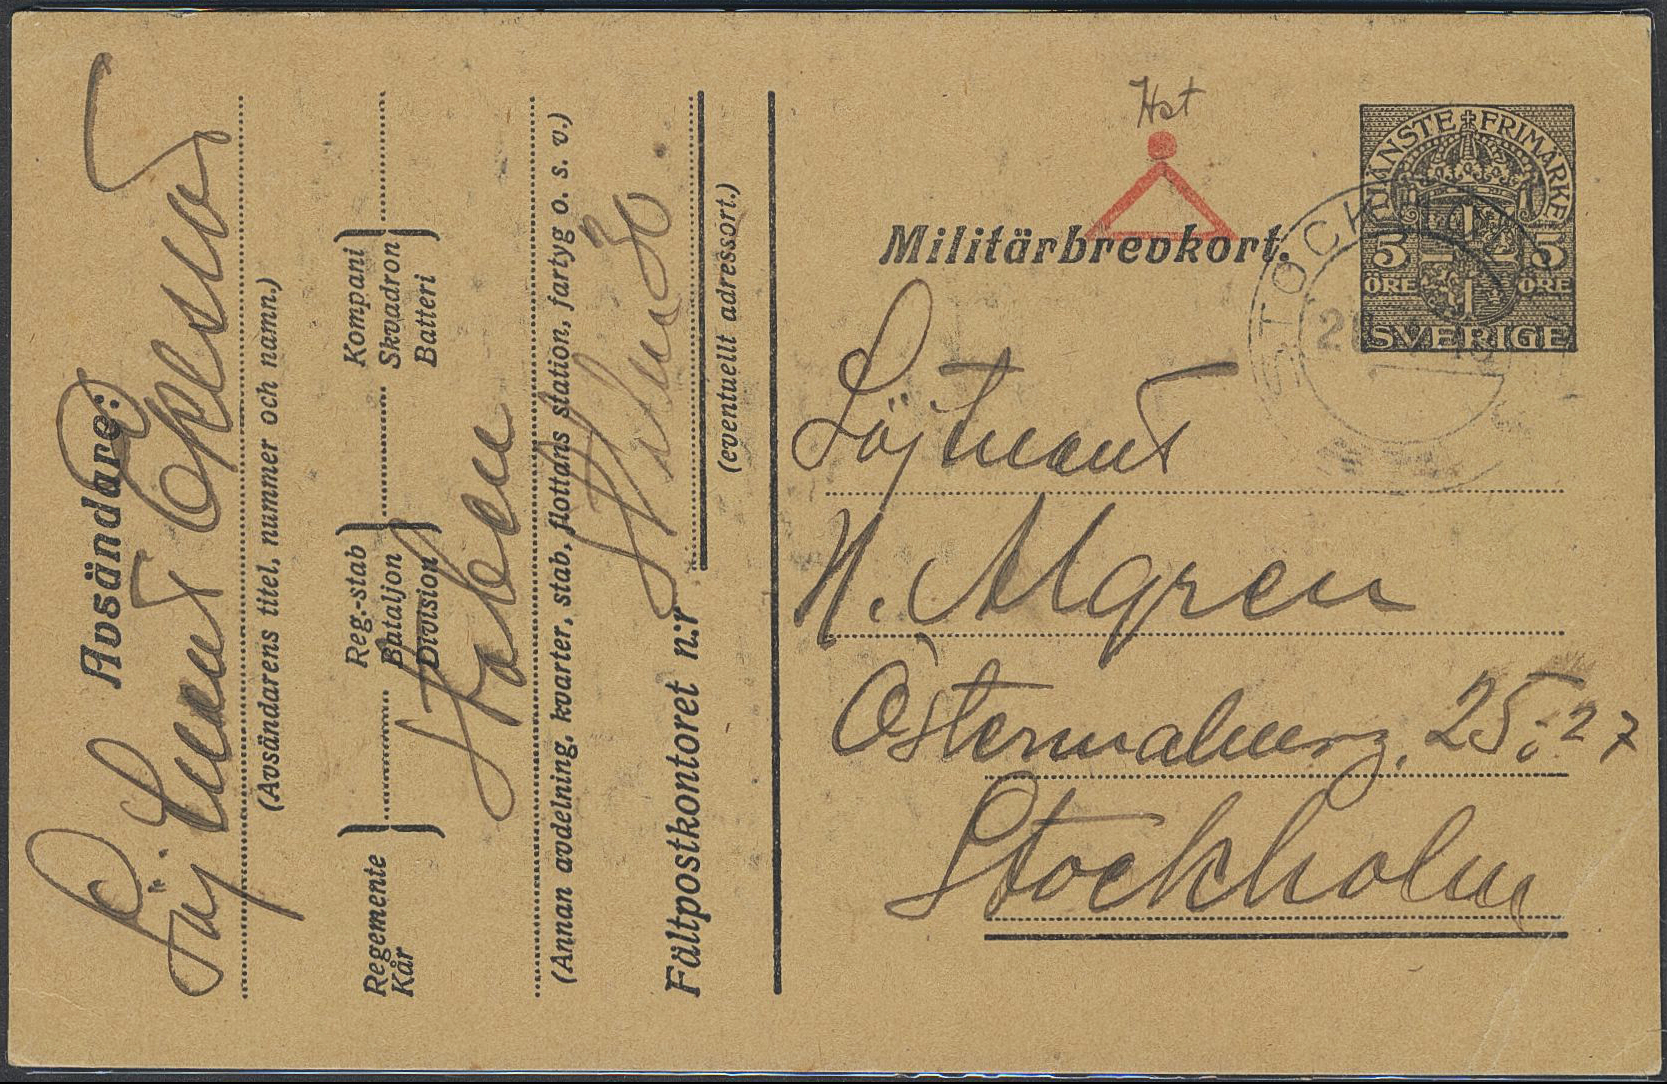 Avsändare:
Löjtnant
(Avsändarens titel, nummer och namn.)
Regemente
Kår
Reg.-stab
Bataljon
Division
Kompani
Skvadron
Batteri
Staben
(Annan avdelning, kvarter, stab, flottans station, fartyg o. s. v.)
Fältpostkontoret n:r 30
(eventuellt adressort.)
Hst
Militärbrevkort.
TJÄNSTE FRIMÄRKE
5 5
ÖRE ÖRE
SVERIGE
STOCKHOLM
Löjtnant
N. Algren
Östermalmsg. 25, 27
Stockholm